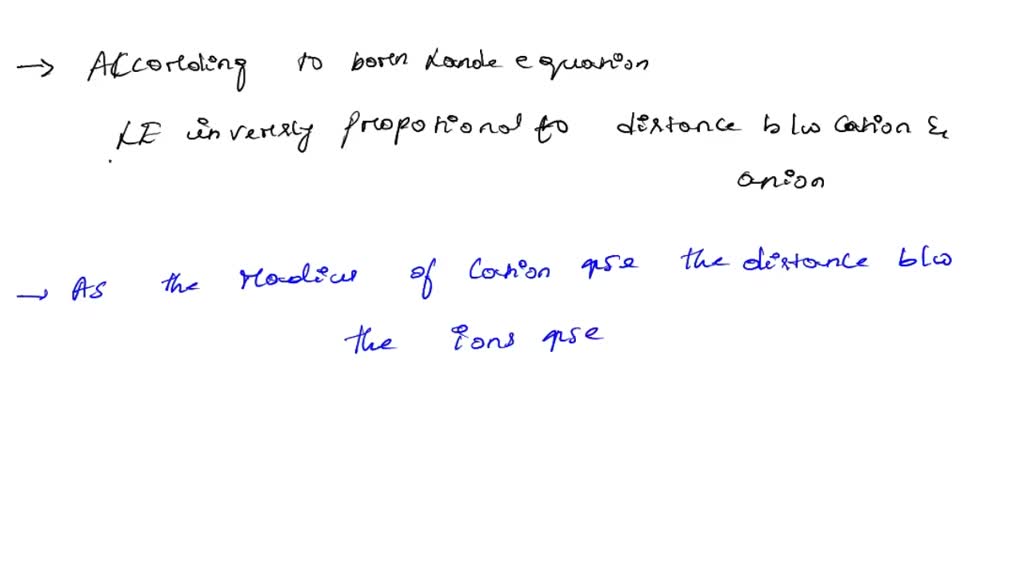 → According to born Lande equation
LE inversly proportional to distance b/w Cation &
anion
→ As the Radius of Cation ↑se the distance b/w
the ions ↑se